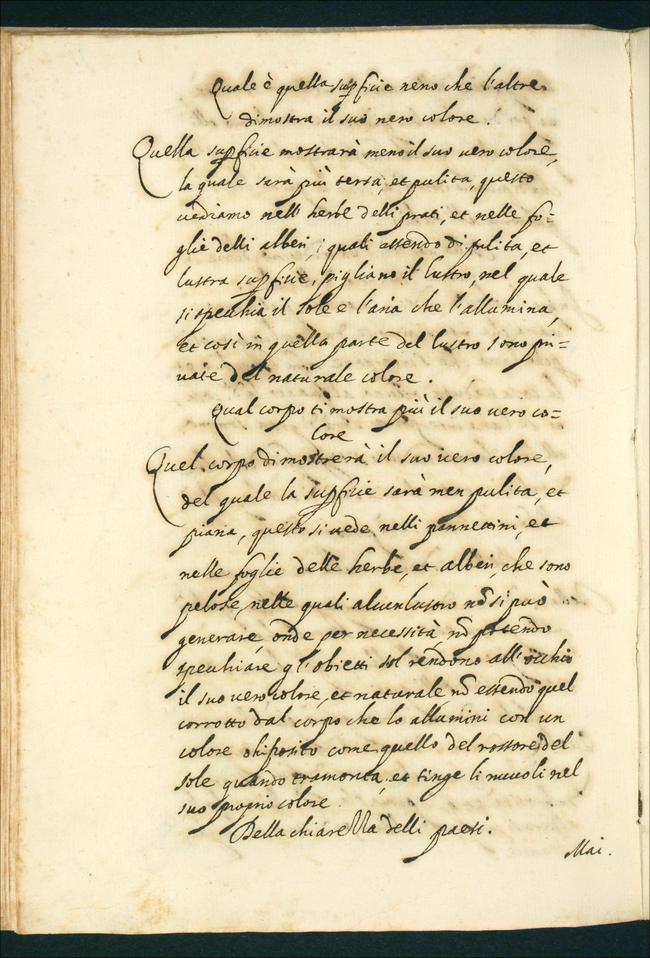 Quale è quella supficie meno che l'altre
dimostra il suo vero colore.
Quella supficie mostrarà meno il suo vero colore,
la quale sarà più tersa, et pulita, questo
vediamo nell' herbe delli prati, et nelle fo=
glie delli alberi, i quali essendo di pulita, et
lustra supficie, pigliano il lustro, nel quale
si specchia il sole e l'aria che l'allumina,
et così in quella parte del lustro sono pri=
vate del naturale colore.
Qual corpo ti mostra più il suo vero co=
lore
Quel corpo dimostrerà il suo vero colore,
del quale la supficie sarà men pulita, et
piana, questo si vede nelli pannellini, et
nelle foglie delle herbe, et alberi, che sono
pelose, nelle quali alcun lustro nõ si può
generare, onde per necessità, nõ potendo
specchiare gl'obietti sol rendono all'occhio
il suo vero colore, et naturale nõ essendo quel
corrotto dal corpo che lo allumini con un
colore opposito come quello del rossore del
sole quando tramonta, et tinge li nuvoli nel
suo proprio colore.
Della chiarezza delli paesi.
Mai.